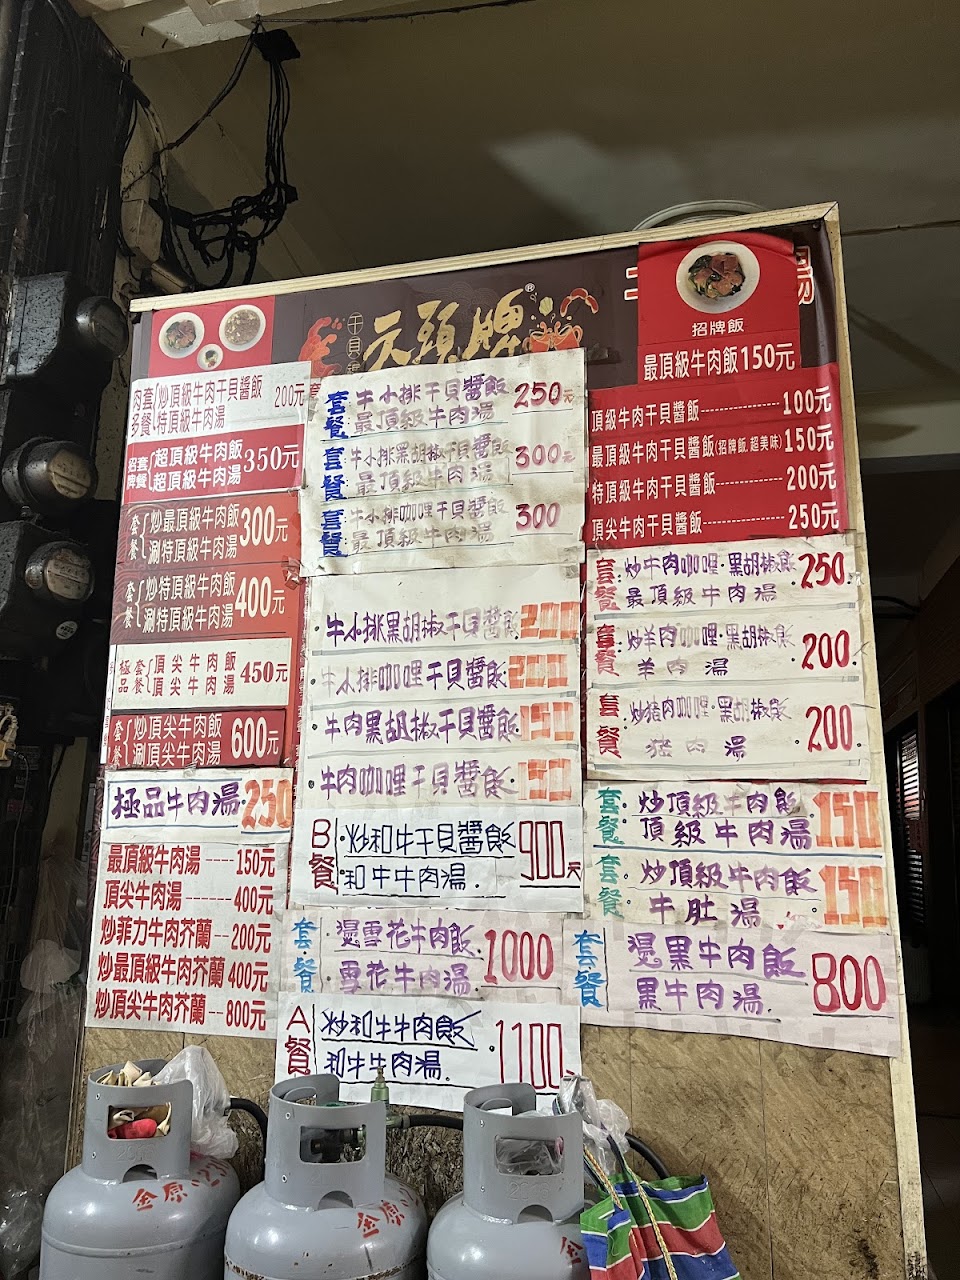 干貝醬
元頭牌®
湯
招牌飯
最頂級牛肉飯150元
頂級牛肉干貝醬飯----------------100元
最頂級牛肉干貝醬飯(招牌飯,超美味)150元
特頂級牛肉干貝醬飯--------------200元
頂尖牛肉干貝醬飯----------------250元
肉多套餐 炒頂級牛肉干貝醬飯 200元
特頂級牛肉湯
招牌套餐 超頂級牛肉飯 350元
超頂級牛肉湯
套餐 炒最頂級牛肉飯 300元
涮特頂級牛肉湯
套餐 炒特頂級牛肉飯 400元
涮特頂級牛肉湯
極品套餐 頂尖牛肉飯 450元
頂尖牛肉湯
套餐 炒頂尖牛肉飯 600元
涮頂尖牛肉湯
極品牛肉湯.250
最頂級牛肉湯----150元
頂尖牛肉湯----400元
炒菲力牛肉芥蘭--200元
炒最頂級牛肉芥蘭400元
炒頂尖牛肉芥蘭--800元
套餐:牛小排干貝醬飯 250元
最頂級牛肉湯
套餐:牛小排黑胡椒干貝醬飯 300元
最頂級牛肉湯
套餐:牛小排咖哩干貝醬飯 300
最頂級牛肉湯
牛小排黑胡椒干貝醬飯200
牛小排咖哩干貝醬飯200
牛肉黑胡椒干貝醬飯150
牛肉咖哩干貝醬飯150
B餐 炒和牛干貝醬飯 900元
和牛牛肉湯.
套餐 燙雪花牛肉飯 1000
雪花牛肉湯
A餐 炒和牛牛肉飯 1100元
和牛牛肉湯.
套餐 炒牛肉咖哩·黑胡椒飯 250
最頂級牛肉湯
套餐 炒羊肉咖哩·黑胡椒飯 200
羊肉湯
套餐 炒豬肉咖哩·黑胡椒飯 200
豬肉湯
套餐 炒頂級牛肉飯 150
頂級牛肉湯
套餐 炒頂級牛肉飯 150
牛肚湯
套餐 燙黑牛肉飯 800
黑牛肉湯.
金原
金原
金